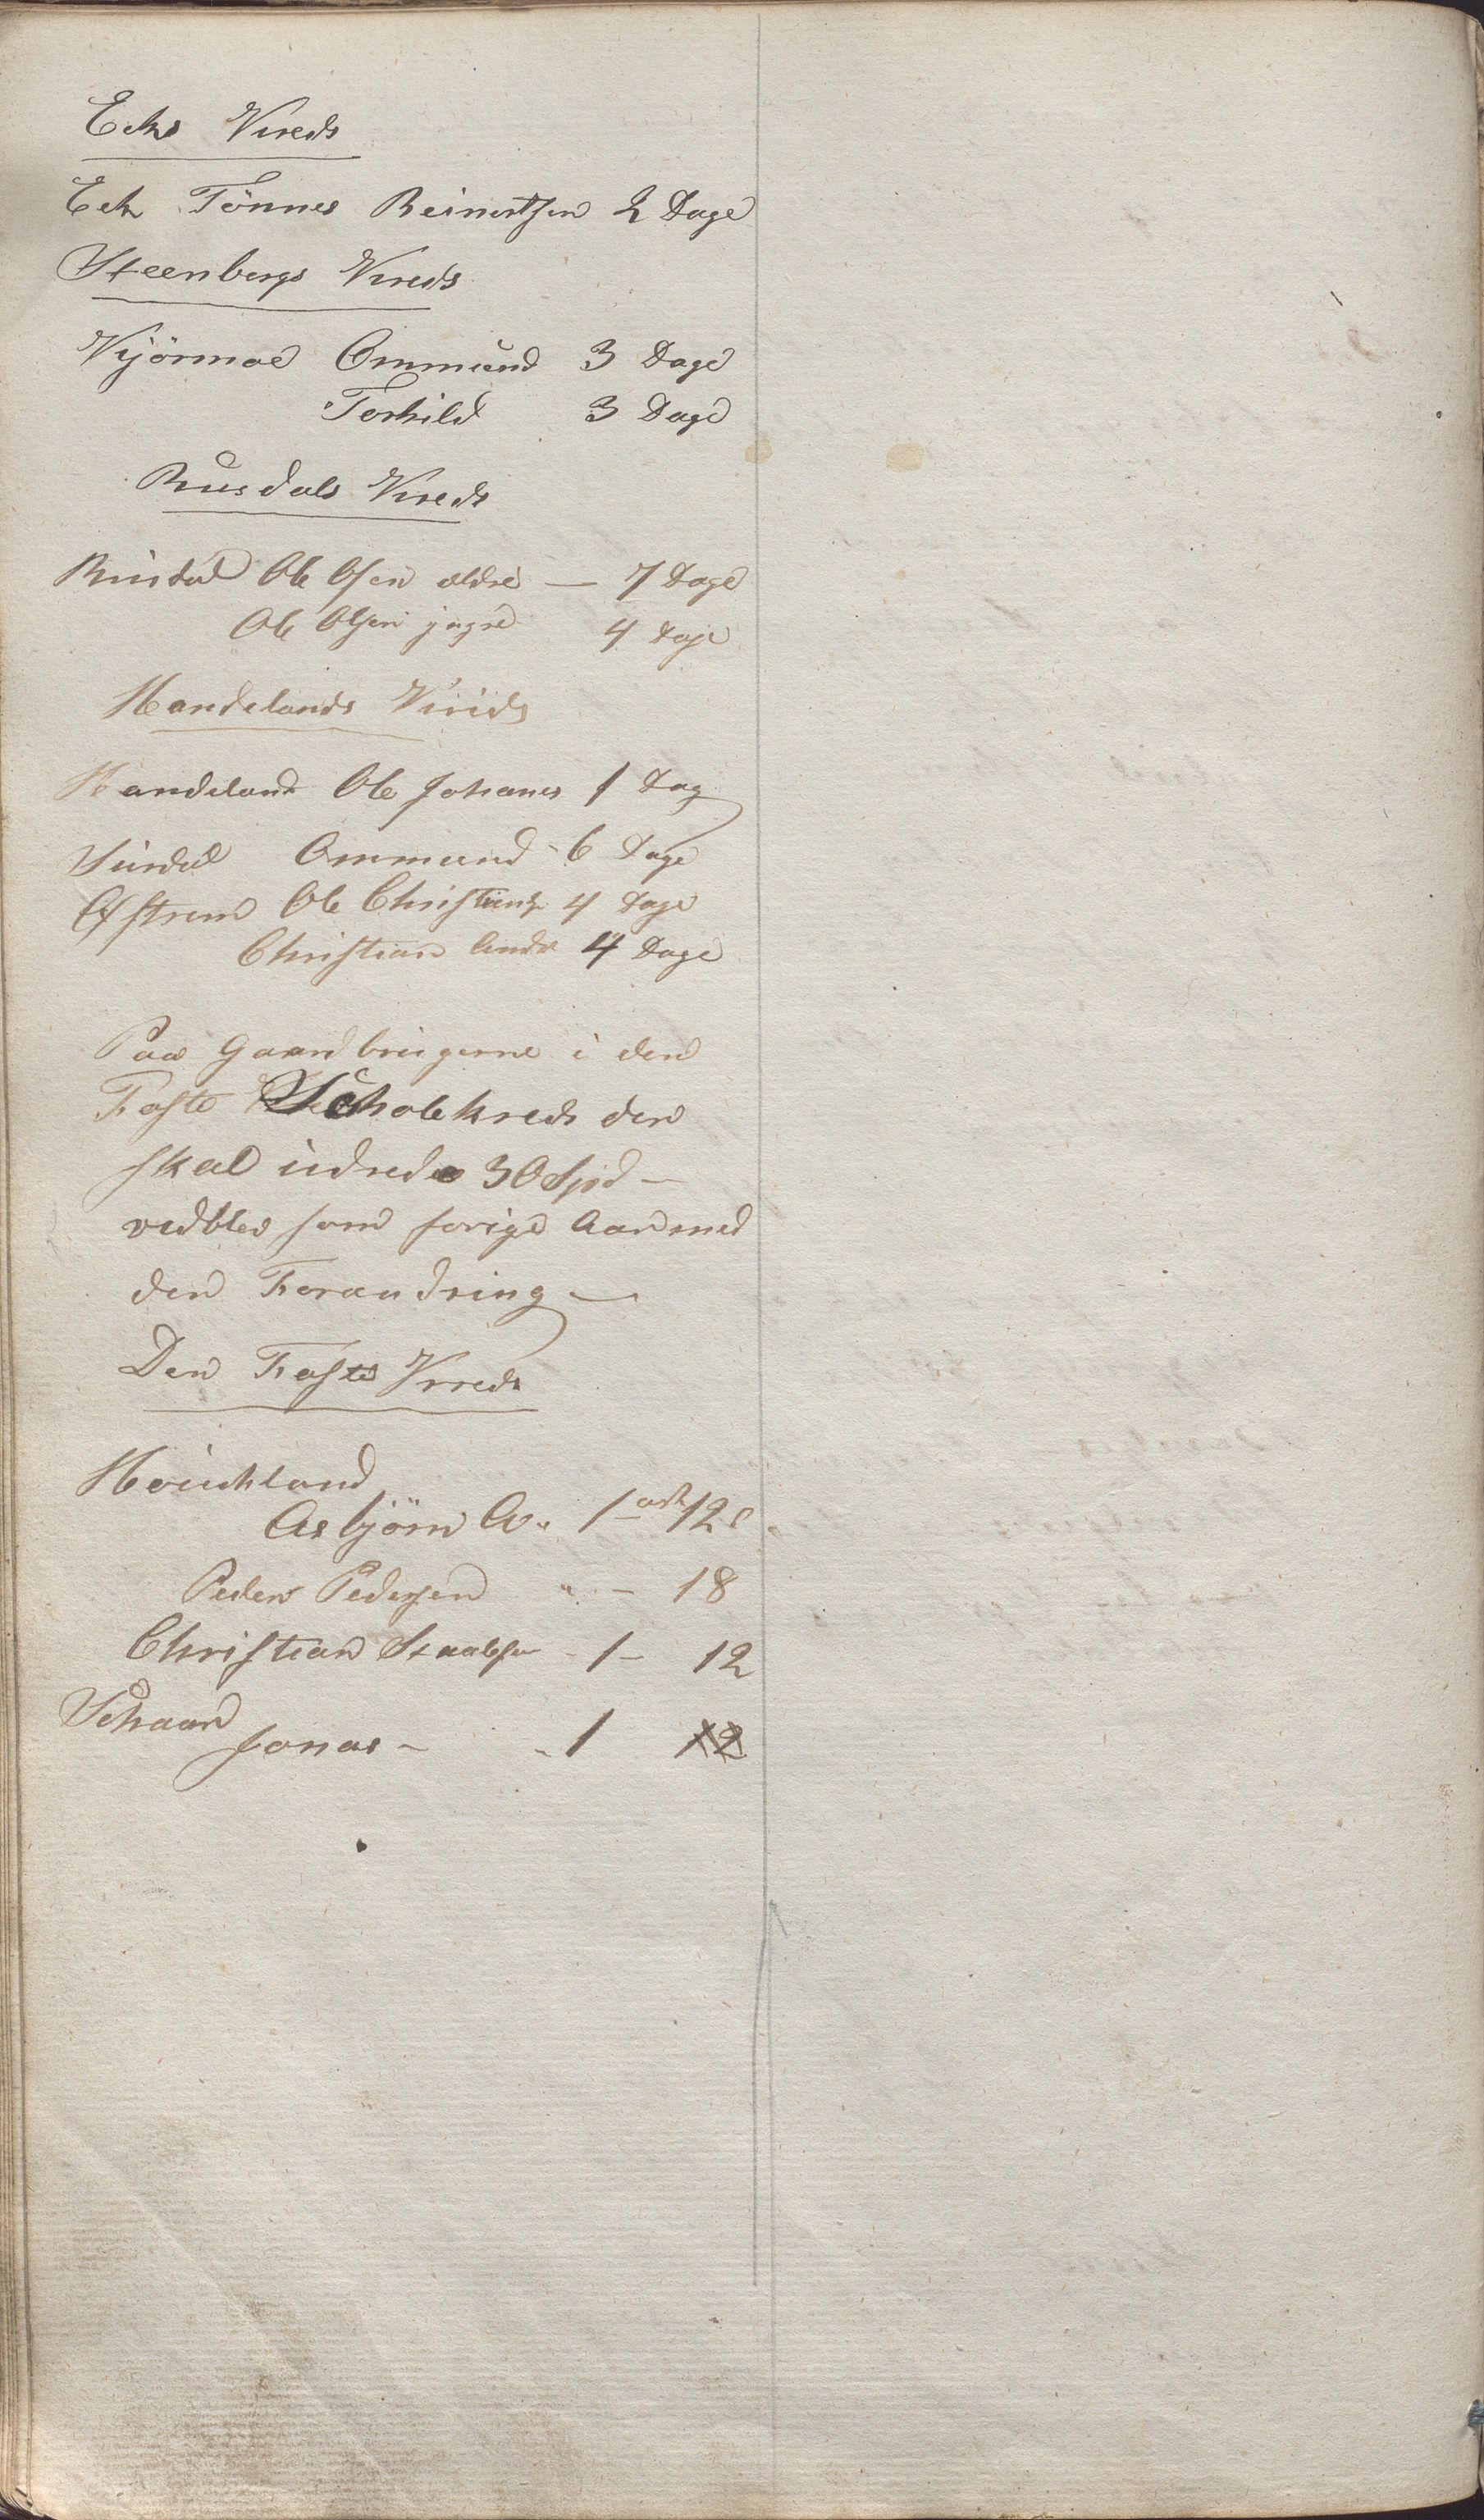 Ecks Kreds
Eck Tönnes Reinertsen 2 Dage
Steenbergs Kreds
Kjörmoe Ommund 3 Dage
Torkild 3 Dage
Rusdals Kreds
Rusdal Ole Olsen ældre — 7 Dage
Ole Olsen yngre 4 Dage
Handelands Kreds
Handeland Ole Johanes 1 Dag
Sirdal Ommund - 6 Dage
Ole Christians 4 Dage
Christian Andr 4 Dage
Paa Gaardbrugerne i den
Faste Skholekreds der
skal udrede 30 Spd —
vedblev som forige Aar med
den Forandring —
Den Faste Kreds
Houckland
Asbjörn A.. 1 ort 12 s
Peder Pedersen " - 18
Christian Staalesen - 1 - 12
Schaar
Jonas - - 1 12